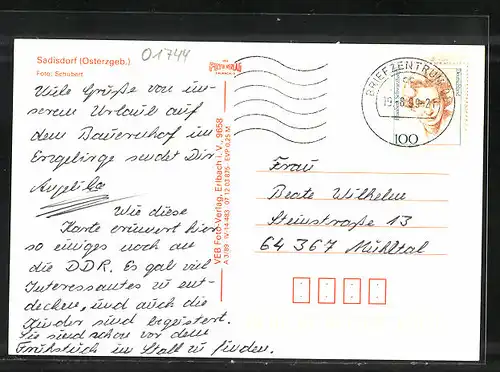 Sadisdorf (Osterzgeb.)
Foto: Schubert
01744
Viele Grüße von un-
serem Urlaub auf
dem Bauernhof im
Erzgebirge sendet Dir
Angelika
Wie diese
Karte erinnert hier
so einiges noch an
die DDR. Es gab viel
Interessantes zu ent-
decken, und auch die
Kinder sind begeistert.
Sie sind schon vor dem
Frühstück im Stall zu finden.
VEB Foto-Verlag, Erlbach i. V., 9658
A 3/89 IV-14-483 07 12 03 875 EVP 0,25 M
BRIEFZENTRUM
100
Frau
Beate Wilhelm
Steinstraße 13
64 367 Mühltal